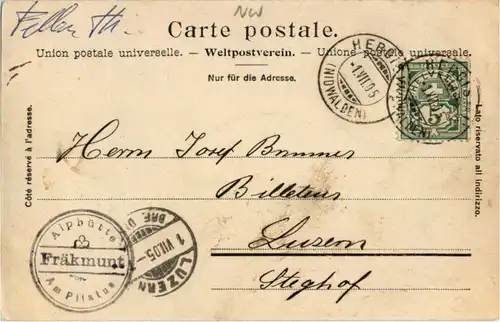 NW
Feller Th.
Carte postale.
Union postale universelle. – Weltpostverein. – Unione postale universale.
Nur für die Adresse.
HERGISWIL
1.VII.05
(NIDWALDEN)
5
Côté réservé à l'adresse.
Lato riservato all indirizzo.
Herrn Josef Brunner
Billeteur
Luzern
Steghof
Alphütte
Fräkmunt
Am Pilatus
LUZERN
1 VII.05
BRF. D